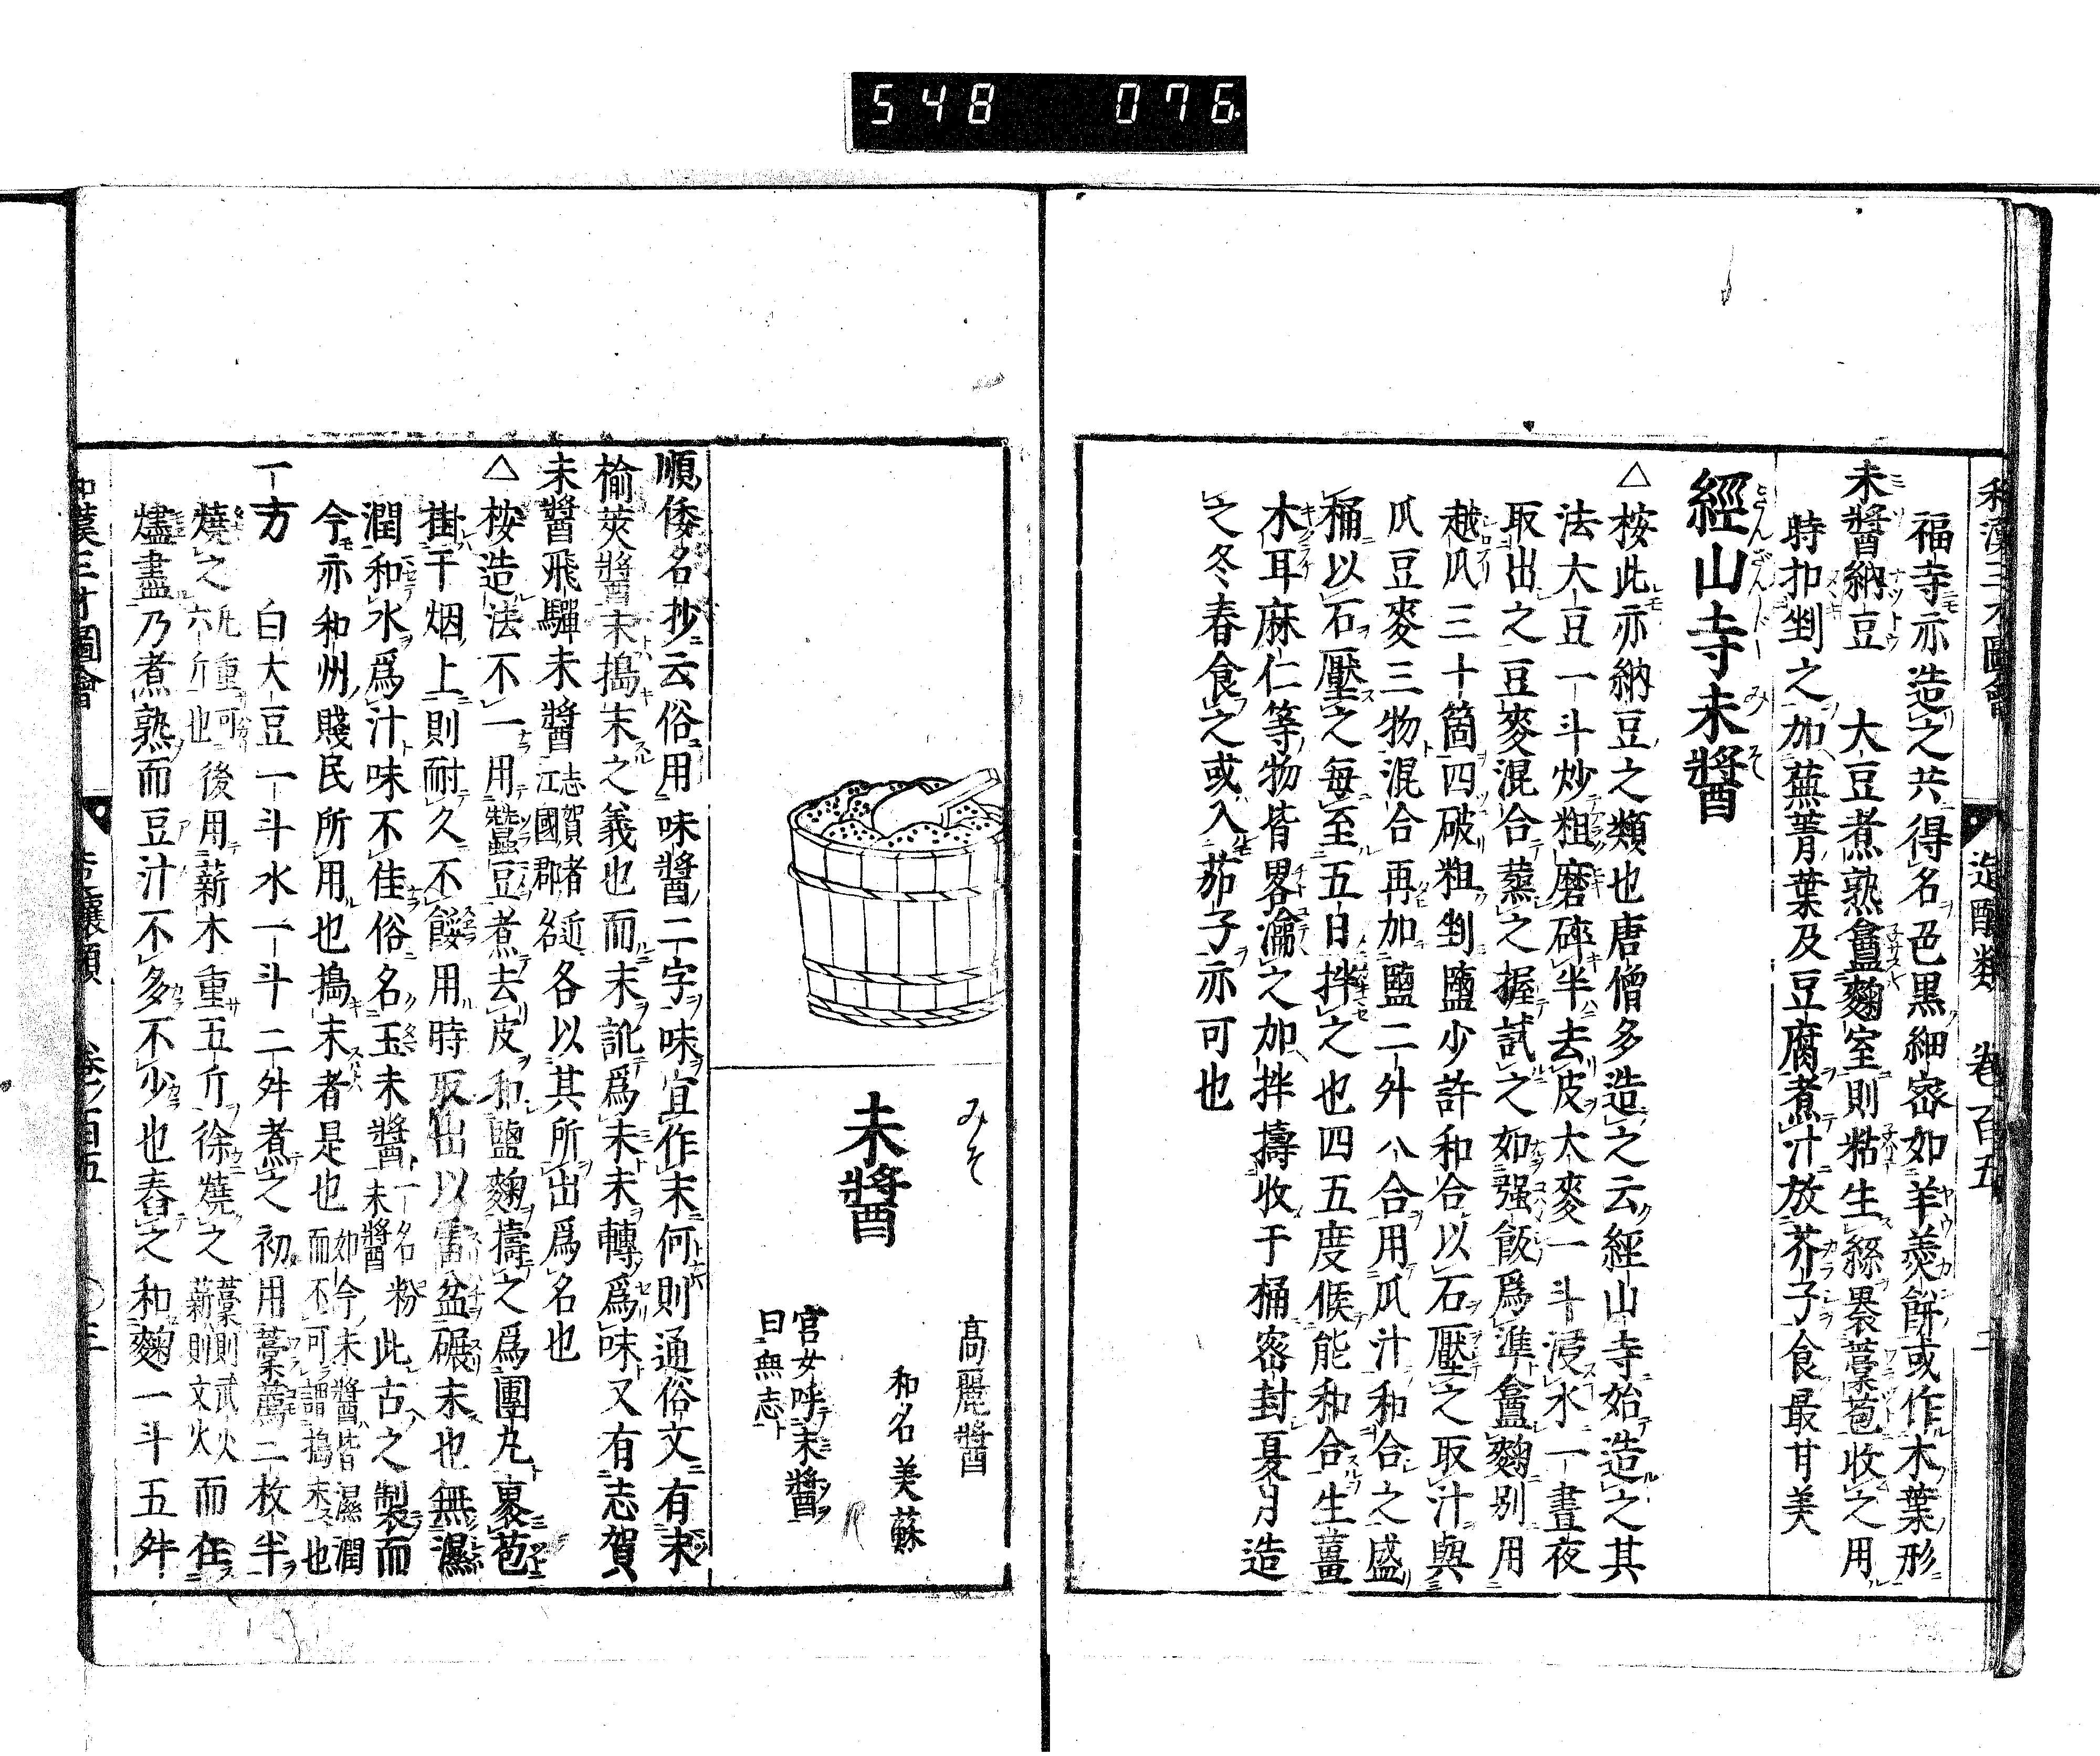 548 076
和漢三才圖會 造醸類 卷百五 二
福寺亦造之共得名色黒細宻如羊羮餅或作木葉形
未醬納豆 大豆煮熟盦麴室則粘生絲褁藁苞收之用
時扣剉之加蕪菁葉及豆腐煮汁放芥子食最甘美
經山寺未醬
△按此亦納豆之類也唐僧多造之云經山寺始造之其
法大豆一斗炒粗磨碎半去皮大麥一斗浸水一晝夜
取出之豆麥混合蒸之握試之如强飯爲準盦麴别用
越瓜三十箇四破粗剉鹽少許和合以石壓之取汁與
瓜豆麥三物混合再加鹽二升八合用瓜汁和合之盛
桶以石壓之毎至五日拌之也四五度候能和合生薑
木耳麻仁等物皆畧瀹之加拌擣收于桶宻封夏月造
之冬春食之或入茄子亦可也
みそ
未醬
高麗醬
和名美蘇
官女呼未醬
曰無志
順倭名抄云俗用味醬二字味宜作末何則通俗文有末
榆莢醬末搗末之義也而末訛爲未未轉爲味又有志賀
未醬飛驒未醬志賀者近江國郡名各以其所出爲名也
△按造法不一用蠶豆煮去皮和鹽麴擣之爲團丸裹苞
掛干烟上則耐久不餒用時取出以雷盆碾末也無濕
潤和水爲汁味不佳俗名玉未醬一名粉未醬此古之製而
今亦和州賤民所用也搗末者是也如今未醬皆濕潤而不可謂搗末也
一方 白大豆一斗水一斗二升煮之初用藁薦二枚半
燒之凡重可六斤也後用薪木重五斤徐燒之藁則武火薪則文火而在
燼盡乃煮熟而豆汁不多不少也舂之和麴一斗五升
和漢三才圖會 造釀類 卷之百五 ○三